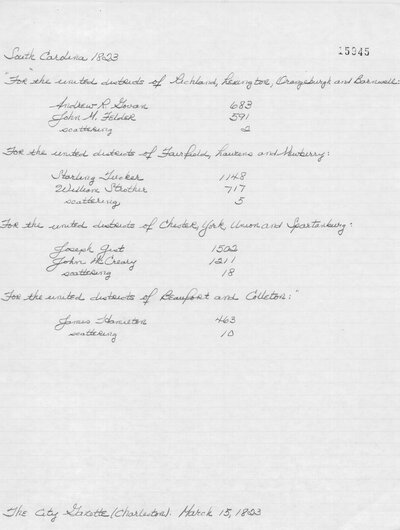 South Carolina 1823
15945
"For the united districts of Richland, Lexington, Orangeburgh and Barnwell:
Andrew R. Govan 683
John M. Felder 591
scattering 2
For the united districts of Fairfield, Laurens and Newberry:
Starling Tucker 1148
William Strother 717
scattering 5
For the united districts of Chester, York, Union and Spartanburg:
Joseph Gist 1502
John McCreary 1211
scattering 18
For the united districts of Beaufort and Colleton:"
James Hamilton 463
scattering 10
The City Gazette (Charleston). March 15, 1823